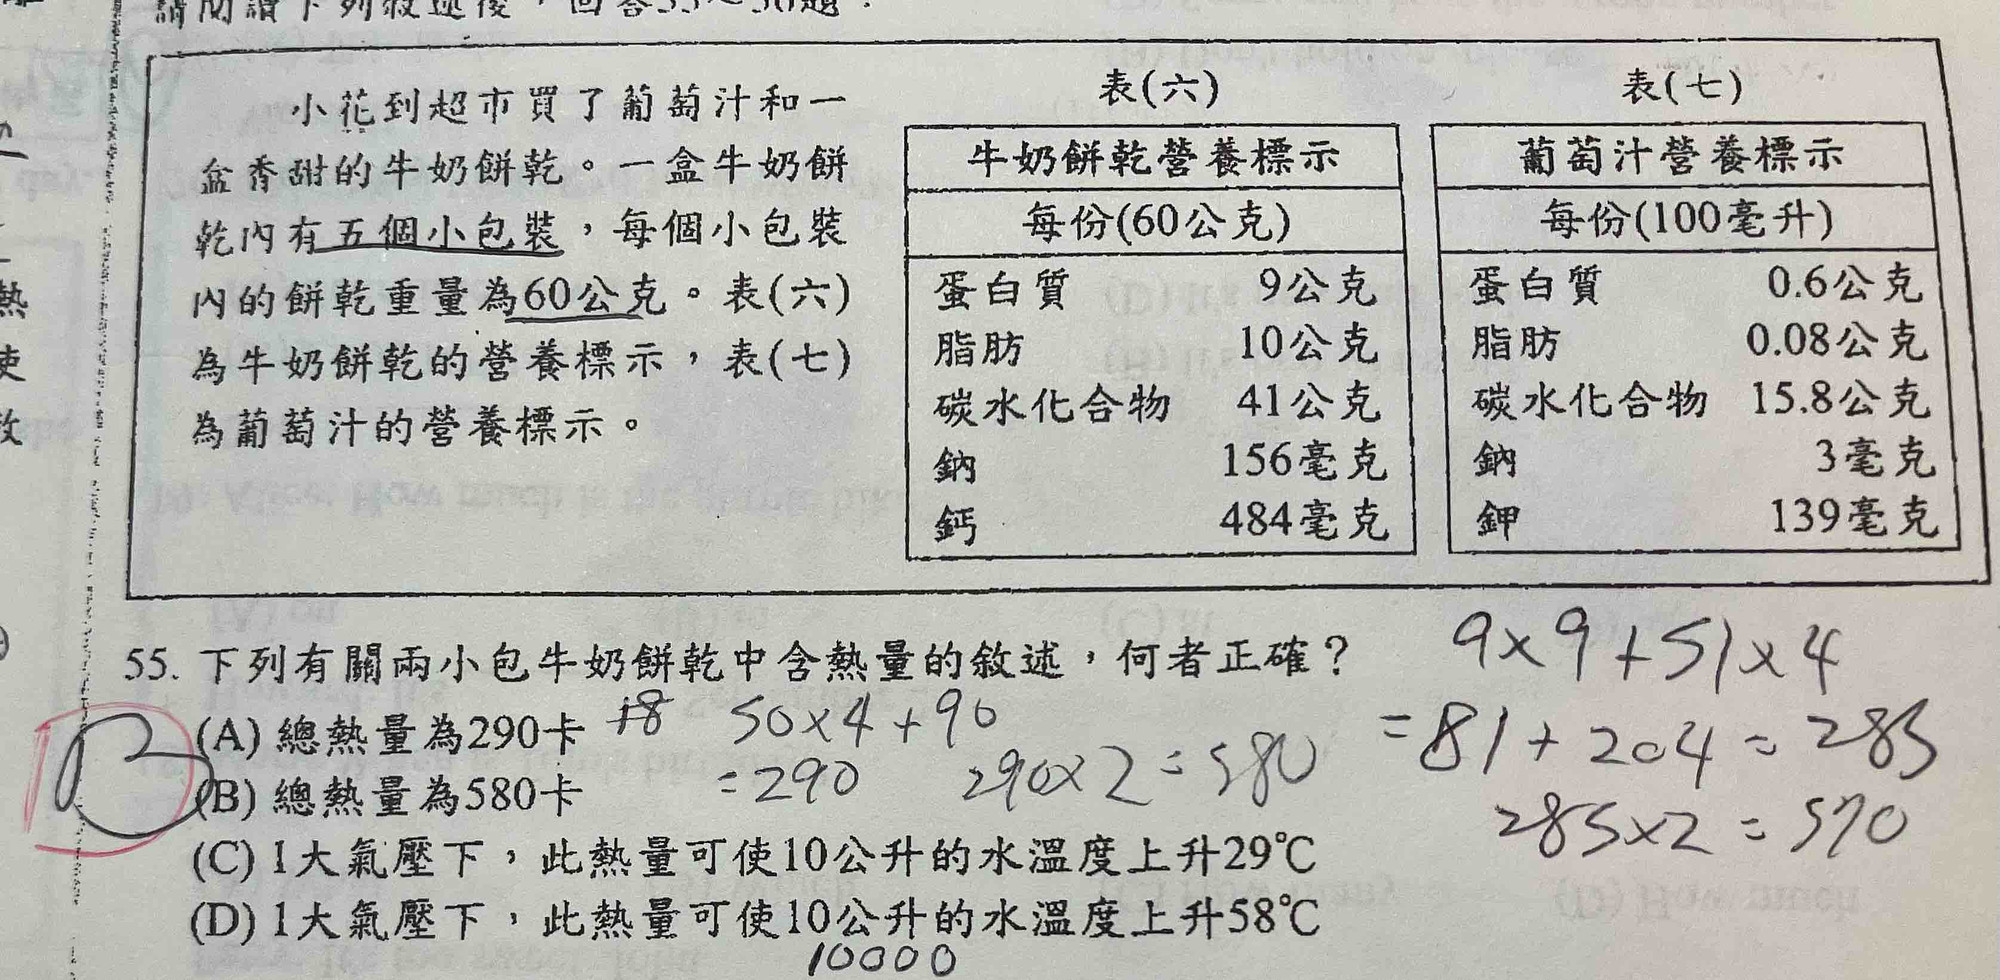 請閱讀下列敘述後，回答55～56題：
小花到超市買了葡萄汁和一
盒香甜的牛奶餅乾。一盒牛奶餅
乾內有五個小包裝，每個小包裝
內的餅乾重量為60公克。表(六)
為牛奶餅乾的營養標示，表(七)
為葡萄汁的營養標示。
表(六)
牛奶餅乾營養標示
每份(60公克)
蛋白質 9公克
脂肪 10公克
碳水化合物 41公克
鈉 156毫克
鈣 484毫克
表(七)
葡萄汁營養標示
每份(100毫升)
蛋白質 0.6公克
脂肪 0.08公克
碳水化合物 15.8公克
鈉 3毫克
鉀 139毫克
55. 下列有關兩小包牛奶餅乾中含熱量的敘述，何者正確？
(A) 總熱量為290卡
(B) 總熱量為580卡
(C) 1大氣壓下，此熱量可使10公升的水溫度上升29℃
(D) 1大氣壓下，此熱量可使10公升的水溫度上升58℃
10000
50×4+90
=290
290×2=580
9×9+51×4
=81+204=285
285×2=570